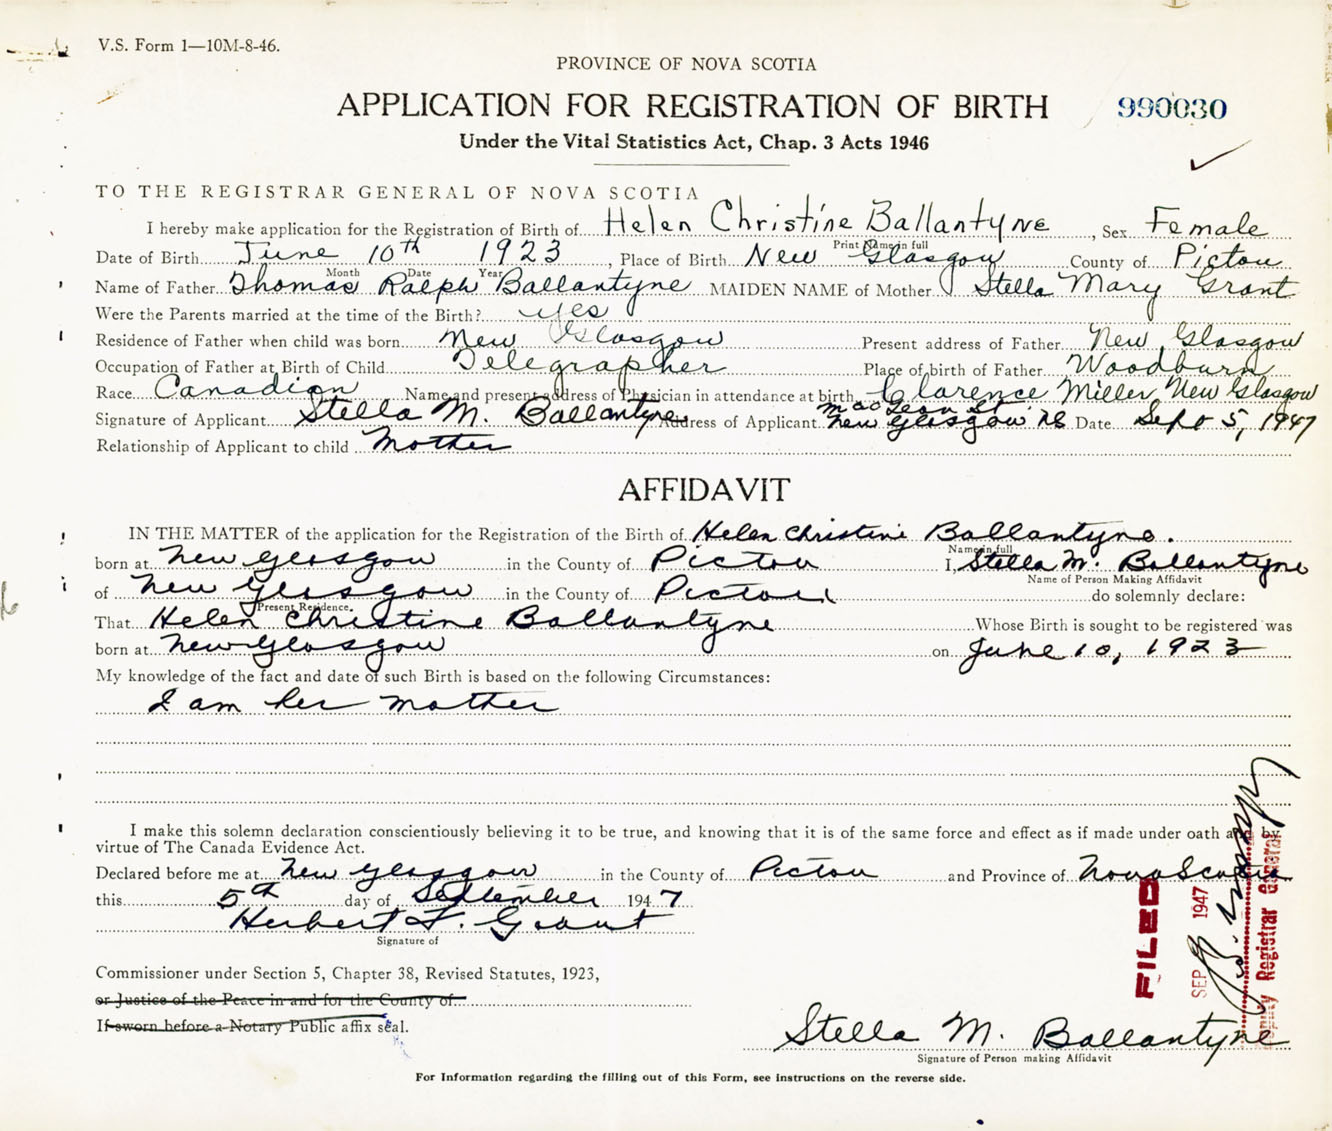 V.S. Form 1—10M-8-46.
PROVINCE OF NOVA SCOTIA
APPLICATION FOR REGISTRATION OF BIRTH 990030
Under the Vital Statistics Act, Chap. 3 Acts 1946
TO THE REGISTRAR GENERAL OF NOVA SCOTIA
I hereby make application for the Registration of Birth of Helen Christine Ballantyne, Sex Female
Print Name in full
Date of Birth June 10th 1923, Place of Birth New Glasgow County of Pictou
Month Date Year
Name of Father Thomas Ralph Ballantyne MAIDEN NAME of Mother Stella Mary Grant
Were the Parents married at the time of the Birth? yes
Residence of Father when child was born New Glasgow Present address of Father New Glasgow
Occupation of Father at Birth of Child Telegrapher Place of birth of Father Woodburn
Race Canadian Name and present address of Physician in attendance at birth Clarence Miller New Glasgow
Signature of Applicant Stella M. Ballantyne Address of Applicant MacLean St. New Glasgow NS Date Sept 5, 1947
Relationship of Applicant to child Mother
AFFIDAVIT
IN THE MATTER of the application for the Registration of the Birth of Helen Christine Ballantyne.
Name in full
born at New Glasgow in the County of Pictou I, Stella M. Ballantyne
Name of Person Making Affidavit
of New Glasgow in the County of Pictou do solemnly declare:
Present Residence.
That Helen Christine Ballantyne Whose Birth is sought to be registered was
born at New Glasgow on June 10, 1923
My knowledge of the fact and date of such Birth is based on the following Circumstances:
I am her mother
I make this solemn declaration conscientiously believing it to be true, and knowing that it is of the same force and effect as if made under oath and by
virtue of The Canada Evidence Act.
Declared before me at New Glasgow in the County of Pictou and Province of Nova Scotia
this 5th day of September 1947
Herbert F. Grant
Signature of
Commissioner under Section 5, Chapter 38, Revised Statutes, 1923,
or Justice of the Peace in and for the County of
If sworn before a Notary Public affix seal.
FILED
SEP 1947
Deputy Registrar General
Stella M. Ballantyne
Signature of Person making Affidavit
For Information regarding the filling out of this Form, see instructions on the reverse side.